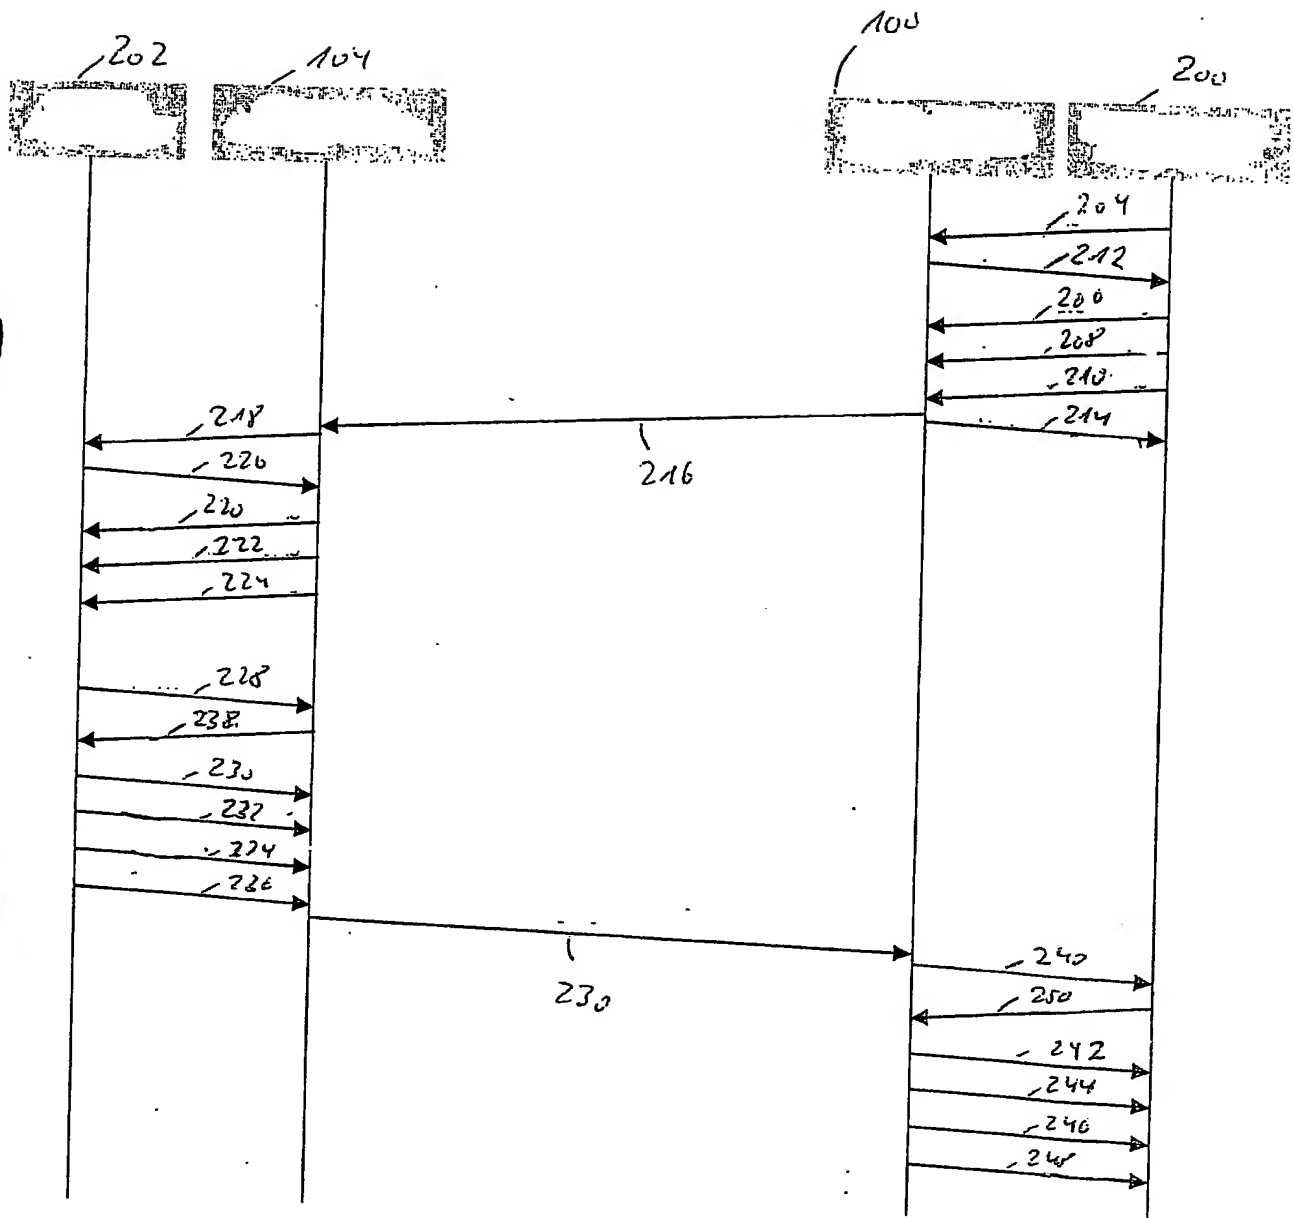 202
104
100
200
204
212
200
208
210
214
216
218
226
220
222
224
228
238
230
232
234
236
230
240
250
242
244
246
248